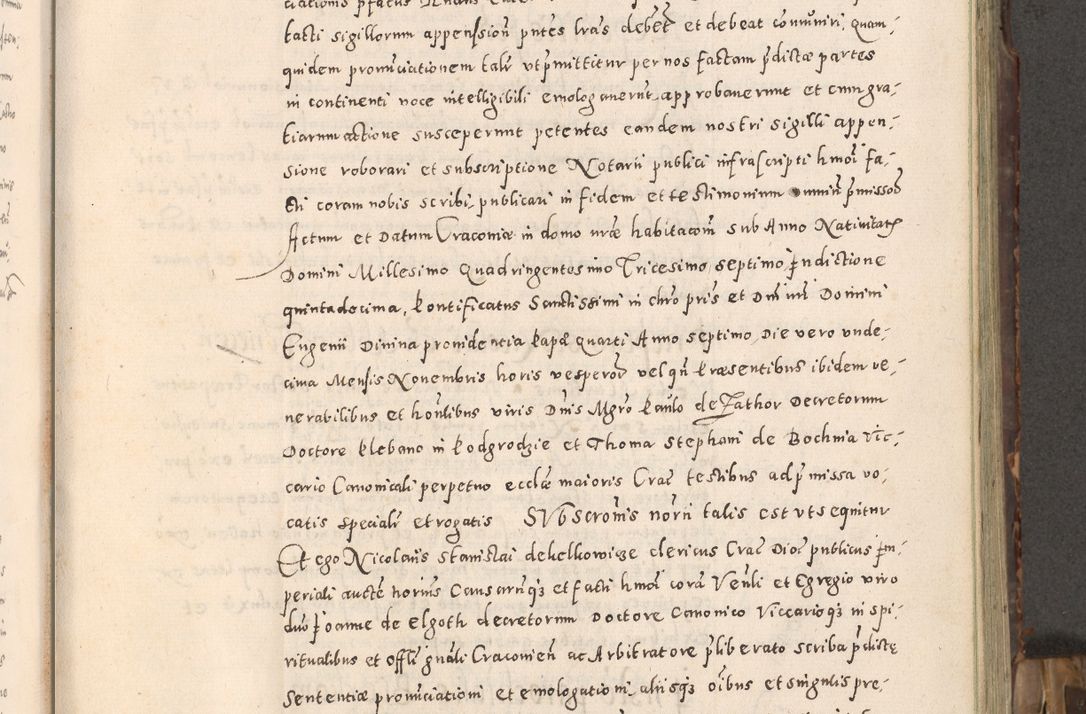 tacti sigillorum appensioñ pñtes lras debet et debeat comuniri, quam-
quidem pronunciationem talr̃ ut p̃mittitur per nos factam p̃dictæ partes
in continenti voce intelligibili emologaverunt approbaverunt et cum gra-
tiarum actione susceperunt petentes eandem nostri sigilli appen-
sione roborari et subscriptione Notarii publici infrascripti hmoi fa-
cti coram nobis scribi, publicari in fidem et testimonium omniũ p̃missor
Actum et Datum Cracoviæ in domo nræ habitacoñ sub Anno Nativitatis
Domini Millesimo Quadringentesimo Tricesimo septimo, Indictione
quintadecima, Pontificatus Sanctissimi in chro pris et Dni nri Domini
Eugenii Divina providentia Papæ quarti Anno septimo, Die vero unde-
cima Mensis Novembris horis vesperor vel qñ Præsentibus ibidem ve-
nerabilibus et honlibus viris Dnis Mgro Paulo de Zathor Decretorum
Doctore Plebano in Podgrodzie et Thoma Stephani de Bochnia Vic-
cario Canonicali perpetuo ecclæ maioris Crac testibus ad p̃missa vo-
catis specialr̃ et rogatis SUbscronis norii talis est ut sequitur
Et ego Nicolaus Stanislai de helkowisze clericus Crac Dioc publicus Im-
periali aucte norius Causarũqz et facti hmoi corã Venli et Egregio viro
dno Joanne de Elgoth decretorum Doctore Canonico Viccarioqz in spi-
ritualibus et offli gnali Cracovieñ ac Arbitratore p̃liberato scriba p̃dictę
Sententiæ pronunciationi et emologationi, aliisqz oibus et singulis pre-